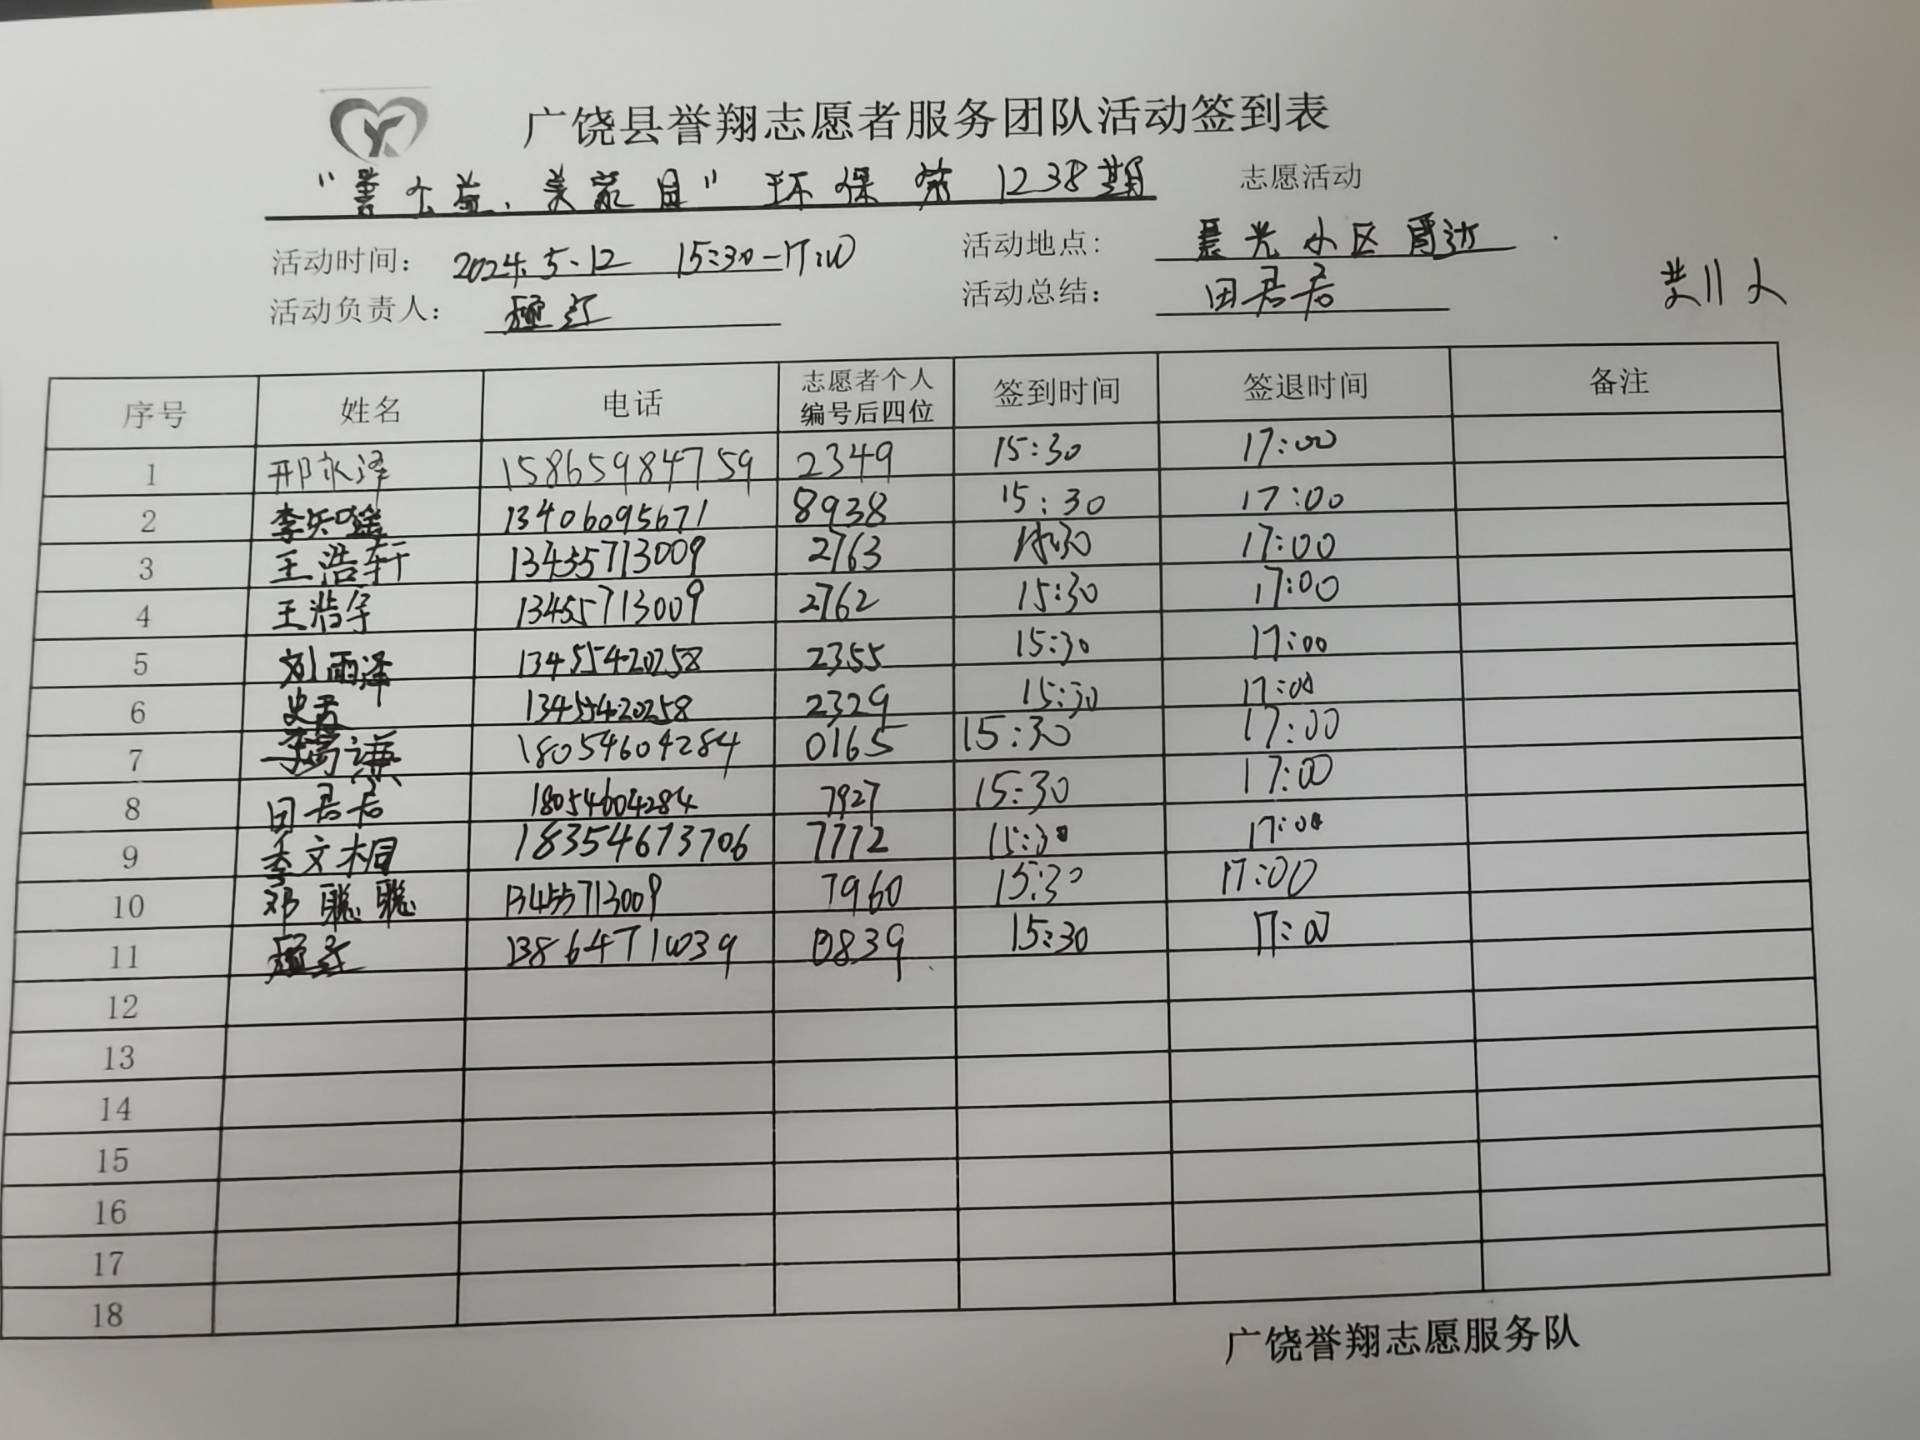 广饶县誉翔志愿者服务团队活动签到表
“善公益、美家园”环保第1238期 志愿活动
活动时间： 2024.5.12 15:30-17:00 活动地点: 晨光小区周边
活动负责人： 红 活动总结： 田君君 共11人
序号 姓名 电话 志愿者个人编号后四位 签到时间 签退时间 备注
1 邢永泽 15865984759 2349 15:30 17:00
2 李知瑶 13406095671 8938 15:30 17:00
3 王浩轩 13455713009 2763 15:30 17:00
4 王浩宇 13455713009 2762 15:30 17:00
5 刘雨泽 13455420258 2355 15:30 17:00
6 史 13455420258 2329 15:30 17:00
7 李 谦 18054604284 0165 15:30 17:00
8 田君君 18054604284 7927 15:30 17:00
9 李文桐 18354673706 7772 15:30 17:00
10 邓聪聪 13455713009 7960 15:30 17:00
11 红 13864710039 0839 15:30 17:00
12
13
14
15
16
17
18
广饶誉翔志愿服务队